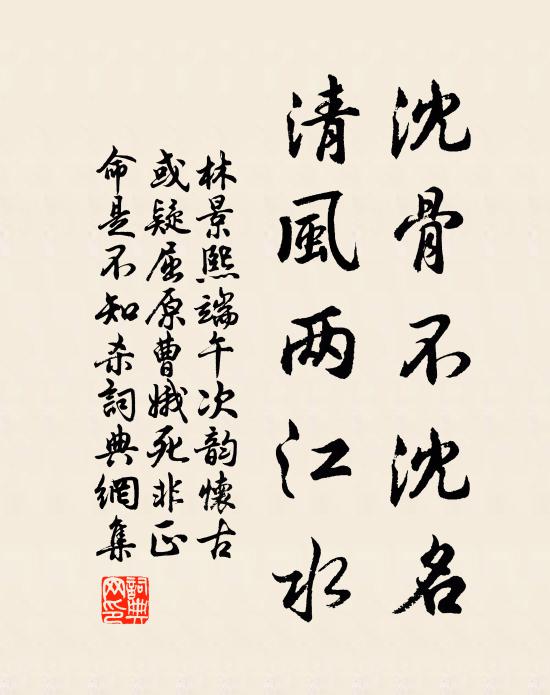 沈骨不沈名
清風两江水
林景熙端午次韵懷古
或疑屈原曹娥死非正
命是不知杀詞典網集